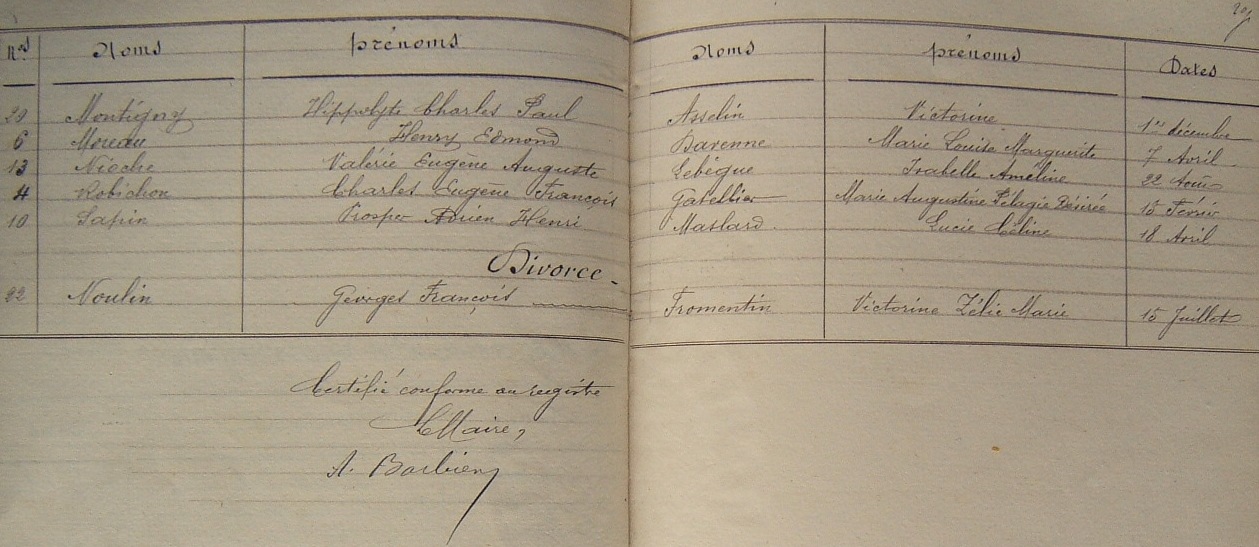 Nos Noms prénoms Noms prénoms Dates
29 Montigny Hippolyte Charles Paul Asselin Victorine 1er décembre
6 Moreau Henry Edmond Davenne Marie Louise Marguerite 7 Avril
13 Nioche Valérie Eugène Auguste Lebègue Isabelle Améline 22 Août
4 Robichon Charles Eugène François Gatellier Marie Augustine Pélagie Désirée 15 Février
10 Sapin Prosper Adrien Henri Maslard Lucie Céline 18 Avril
Divorce
22 Noulin Georges François Fromentin Victorine Zélie Marie 15 Juillet
Certifié conforme au registre
Le Maire,
A. Barbier